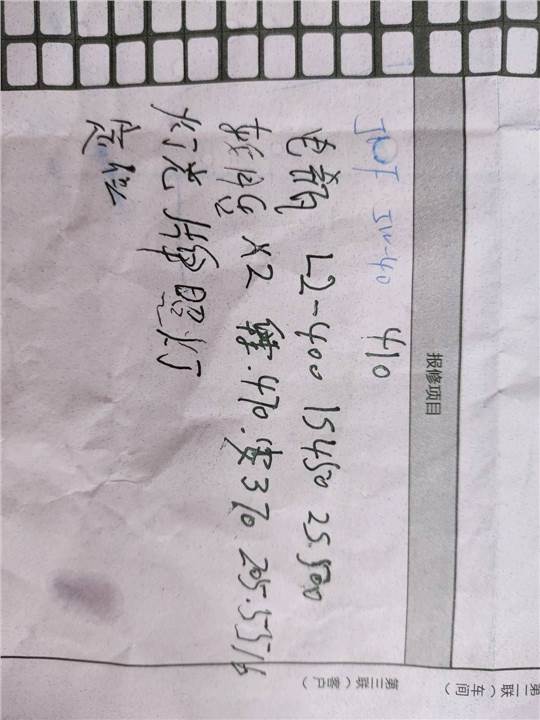 报修项目
5W-40 410
电瓶 L2-400 15450 25.500
前后 X2 韩.470.安370 205.55716
灯光 牌照灯
定位
第二联（车间）
第三联（客户）